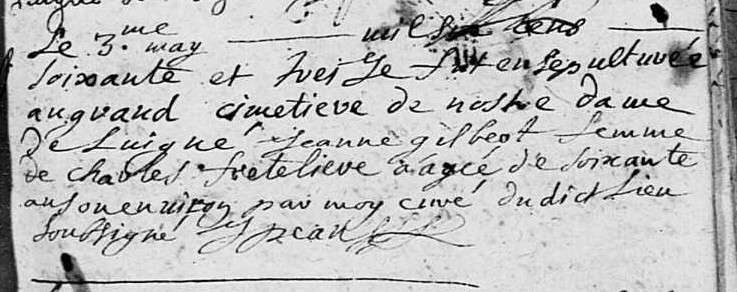 Le 3.me may mil six cens
soixante et treize fut ensepulturée
au grand cimetiere de nostre dame
de Luigné Jeanne gilbert femme
de charles freteliere aagée de soixante
ans ou environ par moy curé dudict Lieu
soubsigné